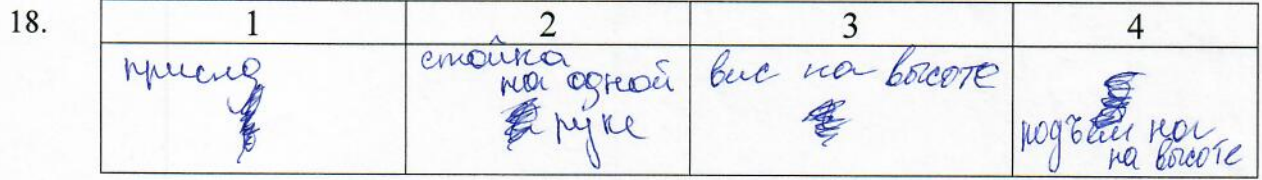 18. 1 2 3 4
стойка
на одной
руке
вис на высоте
подъём на
на высоте